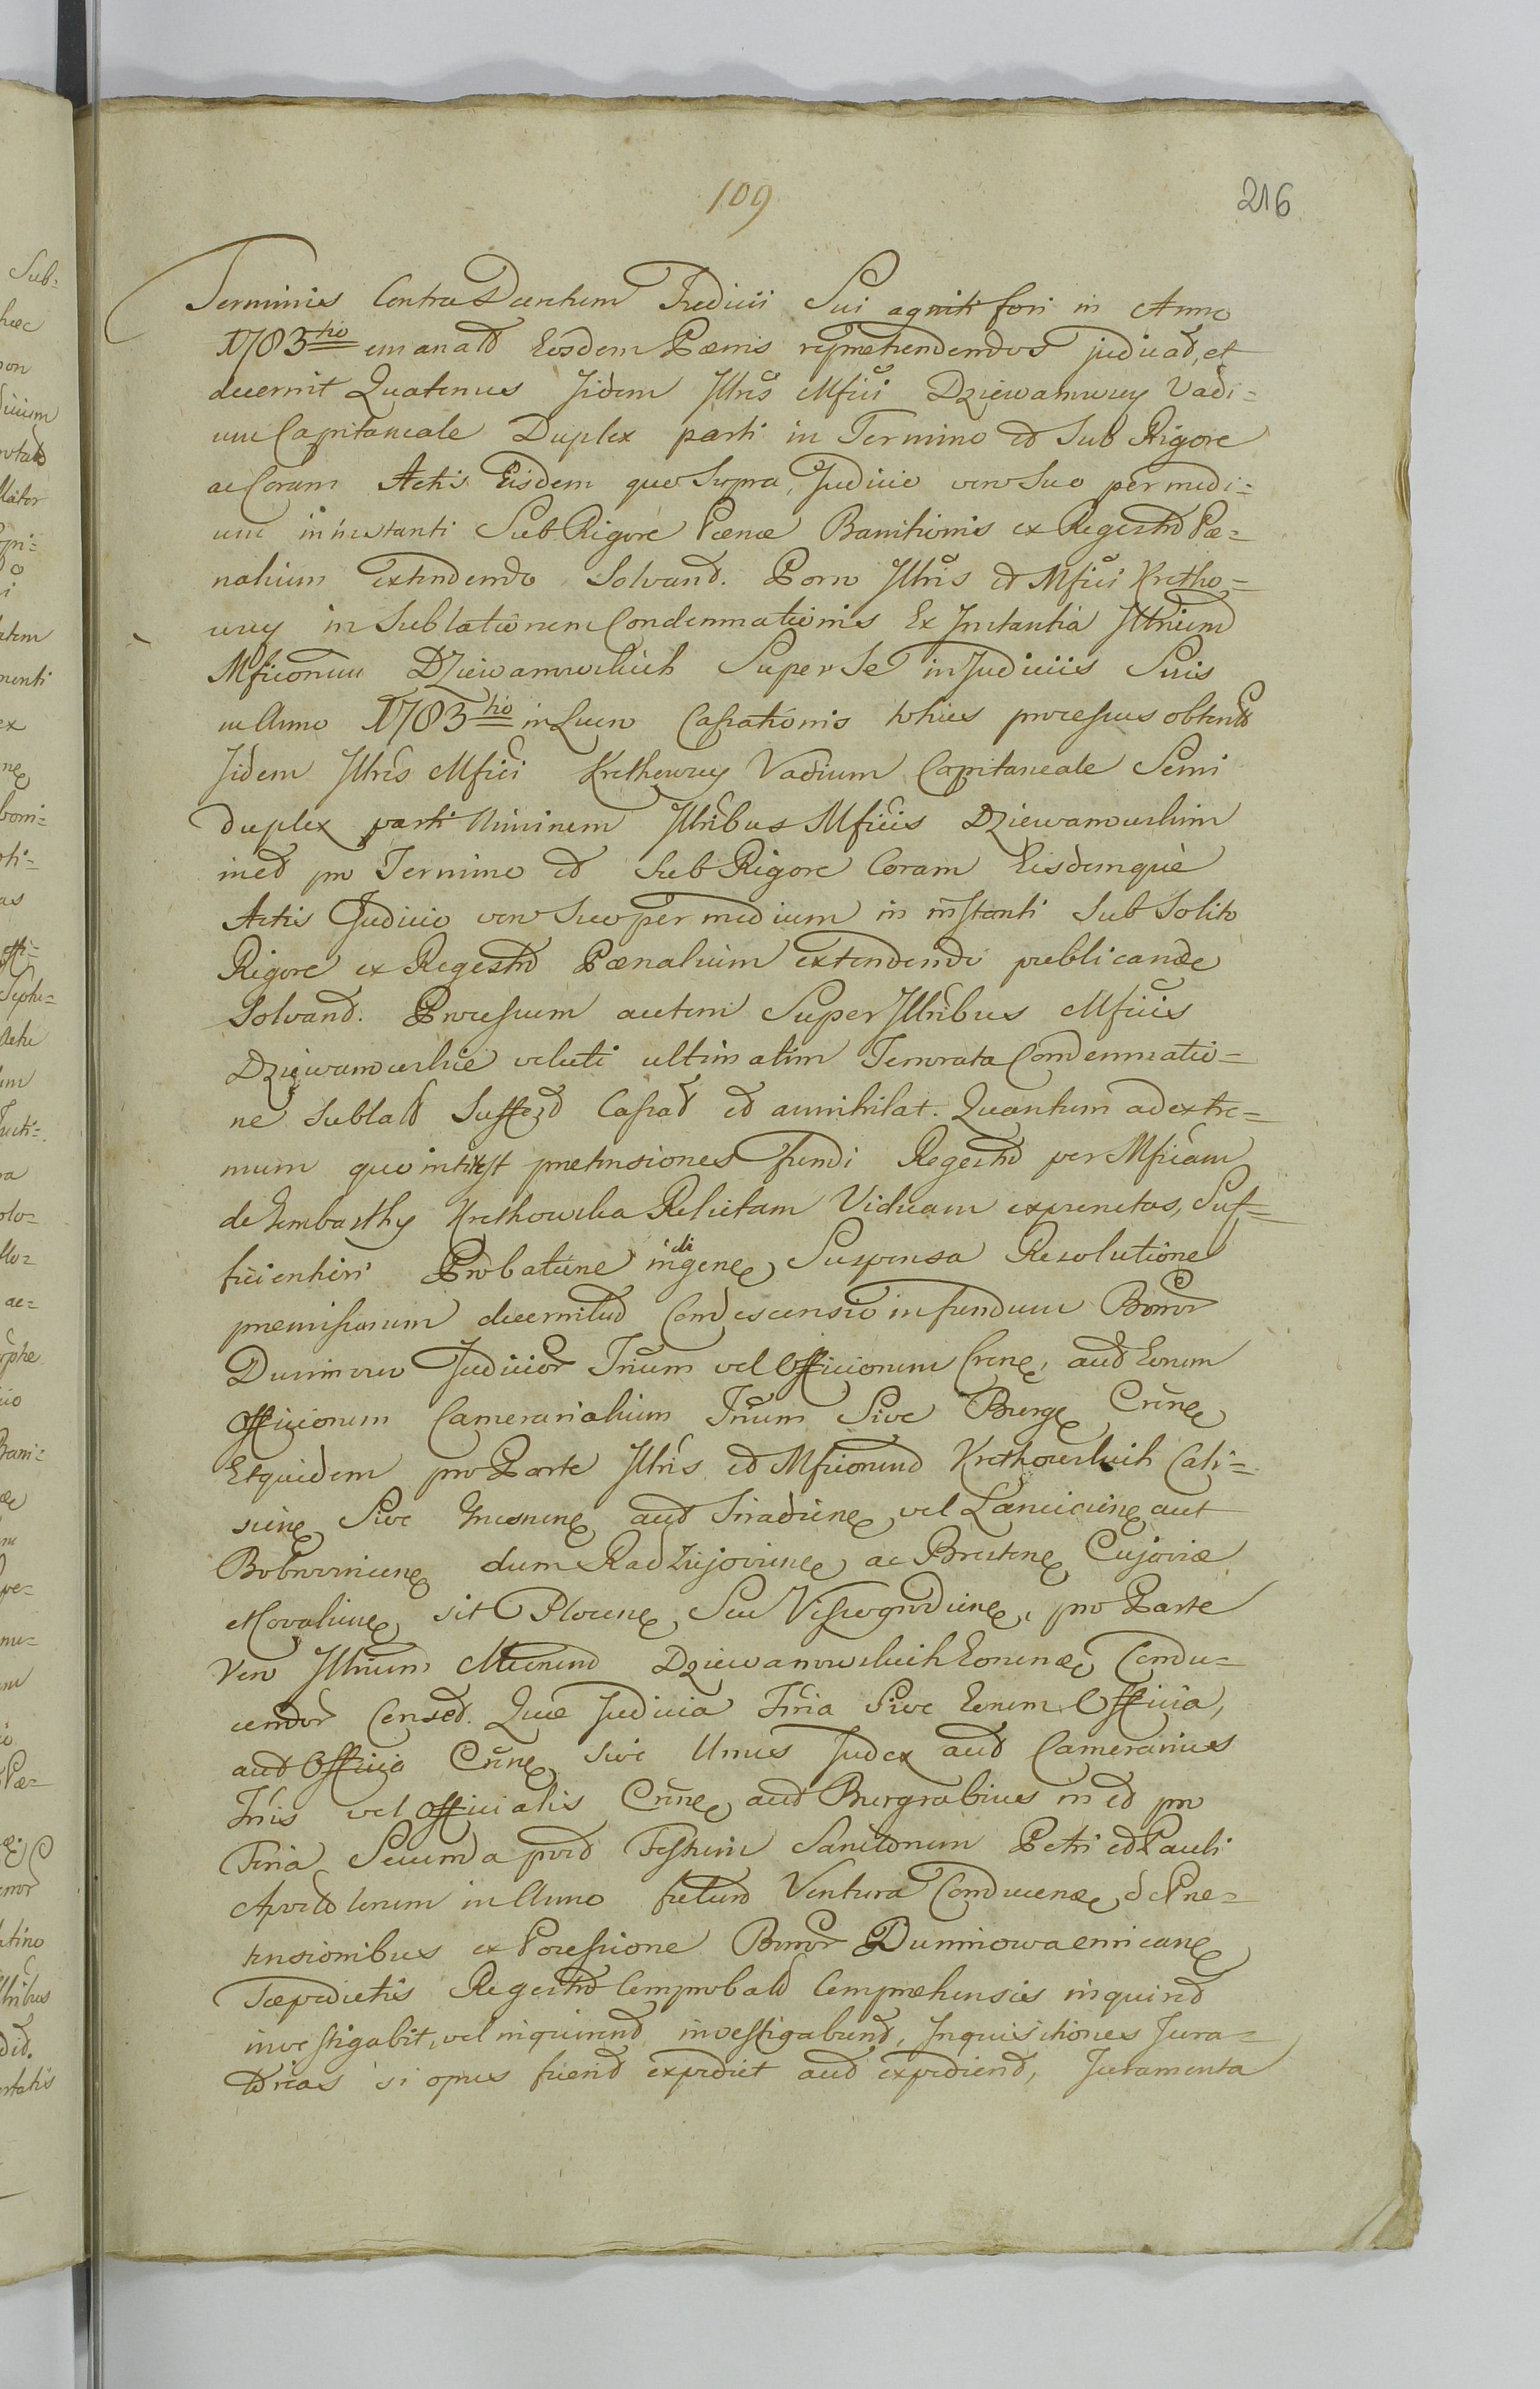 109
216
Terminis Contra Decretum Judicii Sui agniti fori in Anno
1783tio emanato Eosdem Pœnis repræhendendos judicat, et
decernit Quatenus Iidem Illres Mfici Dziewanowscy Vadi=
um Capitaneale Duplex parti in Termino et Sub Rigore
ac Coram Actis Eisdem quo Supra, Judicio vero Suo per medi=
um in instanti Sub Rigore Pœnæ Banitionis ex Regestro Pœ=
nalium extendendo Solvant. Porro Illres et Mfici Kretko=
wscy in Sublationem Condemnationis Ex Instantia Illrium
Mficorum Dziewanowskich Super Se in Judiciis Suis
in Anno 1783tio in Luco Cassationis totius processus obtento
Iidem Illres Mfici Kretkowscy Vadium Capitaneale Semi
duplex parti Uniinem Illribus Mficis Dziewanowskim
in et pro Termino et Sub Rigore Coram Eisdemque
Actis Judicio vero Suo per medium in instanti Sub Solito
Rigore ex Regestro Pœnalium extendendo publicandæ
Solvant. Processum autem Super Illribus Mficis
Dziewanowskie veluti ultimatim Temorata Condemnatio=
ne Sublato Suffert Cassat et annihilat. Quantum ad extre=
mum quo interest prætensiones fundi Regestro per Mficam
de Zembasthy Kretkowska Relictam Viduam expunctas, Suf=
ficientiori Probatione indigene, Suspensa Resolutione
præmissorum decernitur Condescensio in fundum Bonor
Duninowo Judicior Trium vel Officiorum Crene, aut Eorum
Officiorum Camerarialium Trium Sive Burge Crene
Et quidem pro Parte Illris et Mficorum Kretkowskich Cali=
siene Sive Gnesnene aut Siradiene vel Lanciciene aut
Bobrovniciene dum Radziejoviene ac Brestene Cujaviæ
Kovaliene sit Plocene, Seu Vissogrodiene, pro Parte
Vero Illrium Mficorum Dziewanowskich Eorum Condu=
cendor Censet. Quæ Judicia Tria Sive Eorum Officia,
aut Officia Crene sive Unus Judex aut Camerarius
Triis vel Officialis Crene aut Burgrabius in et pro
Feria Secunda post Festum Sanctorum Petri et Pauli
Apostolorum in Anno futuro Ventura Conducenæ de Præ=
tensionibus ex Possessione Bonor Duninowa enuncane
Sæpedictis Regestro Comprobato Compræhensis inquiret
investigabit, vel inquirent investigabunt, Inquisitiones Jura=
torias si opus fuerit expediet aut expedient, Juramenta